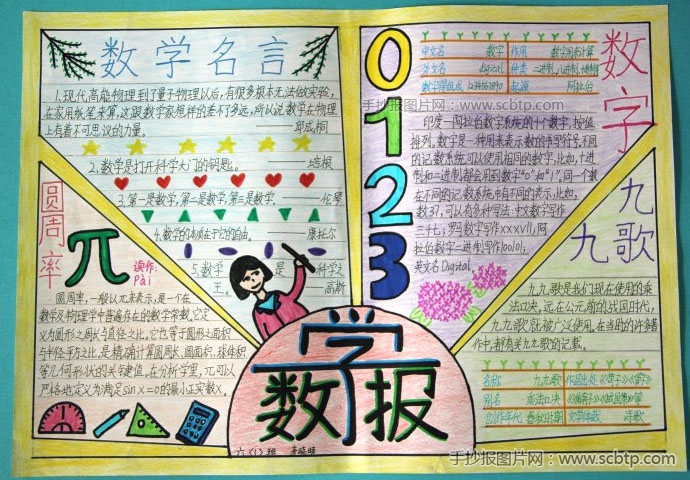 数学名言
1. 现代高能物理到了量子物理以后,有很多根本无法做实验,
在家用纸笔来算,这跟数学家想样的差不了多远,所以说数学在物理
上有着不可思议的力量。 ——邱成桐
2. 数学是打开科学大门的钥匙。 ——培根
3. 第一是数学,第二是数学,第三是数学。 ——伦琴
4. 数学的本质在于它的自由。 ——康托尔
5. 数学是科学之
王。 ——高斯
圆周率
π
读作:
Pài
圆周率,一般以π来表示,是一个在
数学及物理学中普遍存在的数学常数。它定
义为圆形之周长与直径之比。它也等于圆形之面积
与半径平方之比。是精确计算圆周长、圆面积、球体积
等几何形状的关键值。在分析学里,π可以
严格地定义为满足sin x=0的最小正实数X。
数学报
六(1)班
0
1
2
3
数字
中文名 数字 作用 数字用来计算
外文名 digital 种类 二进制,八进制,
起源 阿拉伯
手抄报图片网·www.scbtp.com
印度—阿拉伯数字系统的十个数字,按值
排列。数字是一种用来表示数的书写符号。不同
的记数系统可以使用相同的数字,比如,十进
制和二进制都会用到数字“0”和“1”。同一个数
在不同的记数系统中有不同的表示,比如,
数37,可以有多种写法:中文数字写作
三十七;罗马数字写作XXXVII;阿
拉伯数字二进制写作100101;
英文名Digital。
九九歌
九九歌是我们现在使用的乘
法口诀。远在公元前的战国时代,
九九歌就被广泛使用。在当时的许多著
作中,都有关九九歌的记载。
名称 九九歌 作品出处《荀子》《管子》
别名 乘法口决
创作年代 春秋时期 文学体裁 诗歌
手抄报图片网·www.scbtp.com